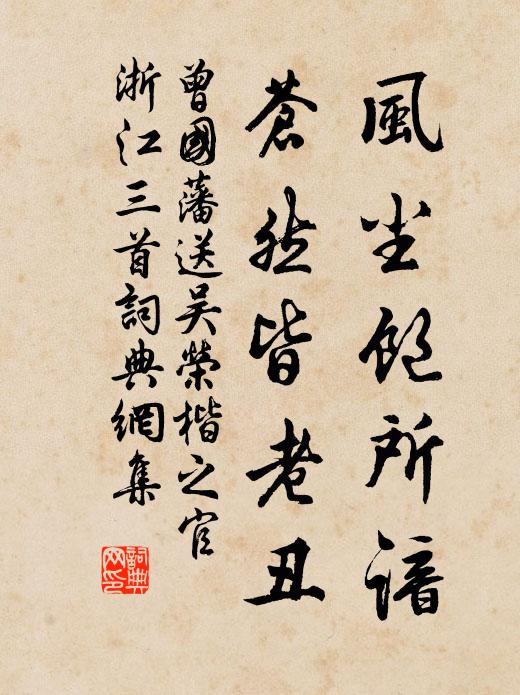 風塵飽所諳
蒼然皆老丑
曾國藩送吴榮楷之官
浙江三首詞典網集
詞典网印